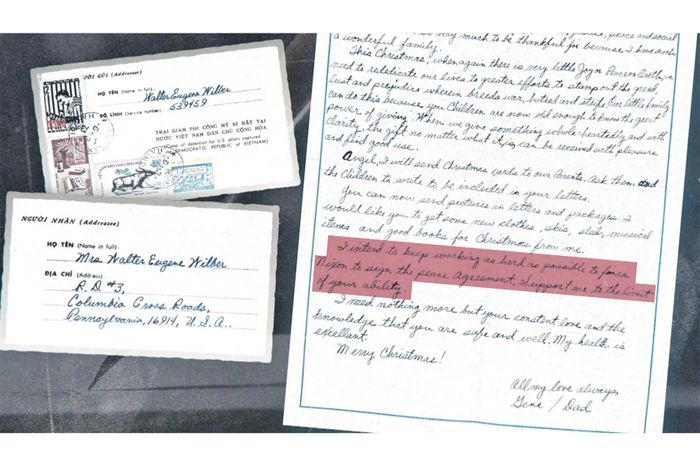 (Addresser)
HỌ TÊN (Name in full)
Walter Eugene Wilber
SỐ LÍNH (Service number)
539459
TRẠI GIAM PHI CÔNG MỸ BỊ BẮT TẠI
NƯỚC VIỆT NAM DÂN CHỦ CỘNG HÒA
(Camp of detention for U.S. pilots captured
DEMOCRATIC REPUBLIC of VIETNAM)
NGƯỜI NHẬN (Addressee)
HỌ TÊN (Name in full):
Mrs. Walter Eugene Wilber
ĐỊA CHỈ (Address):
R.D. #3,
Columbia Cross Roads,
Pennsylvania, 16914, U.S.A..
very much to be thankful for because I have such
a wonderful family.
This Christmas, when again there is very little Joy or Peace on Earth, we
need to rededicate our lives to greater efforts to stamp out the greed,
lust and prejudice wherein breeds war, hatred and strife. Our little family
can do this because you Children are now old enough to know the great
power of giving. When we give something whole-heartedly and with
clarity, the gift no matter what it is, can be received with pleasure
and find good use.
Angel, I will send Christmas cards to our Parents. Ask them and
the Children to write to be included in your letters.
You can now send pictures in letters and packages. I
would like you to get some new clothes, skis, sleds, musical
items and good books for Christmas from me.
I intend to keep working as hard as possible to force
Nixon to sign the peace Agreement. Support me to the limit
of your ability!
I need nothing more but your constant love and the
knowledge that you are safe and well. My health is
excellant.
Merry Christmas!
All my love always,
Gene / Dad